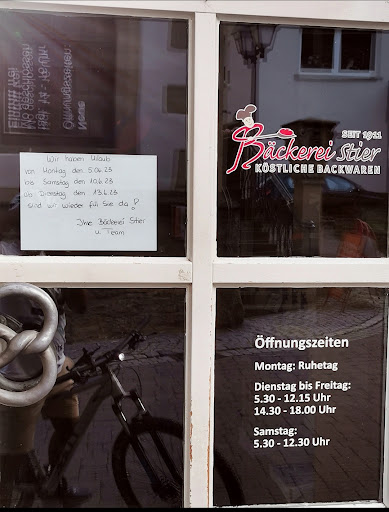 Eintritt frei
Mo geschlossen
14 - 18 Uhr
Öffnungszeiten
Wir haben Urlaub
von Montag den 5.06.23
bis Samstag den 10.6.23
ab Dienstag den 13.6.23
sind wir wieder für Sie da!
Ihre Bäckerei Stier
u. Team
SEIT 1911
Bäckerei Stier
KÖSTLICHE BACKWAREN
Öffnungszeiten
Montag: Ruhetag
Dienstag bis Freitag:
5.30 - 12.15 Uhr
14.30 - 18.00 Uhr
Samstag:
5.30 - 12.30 Uhr